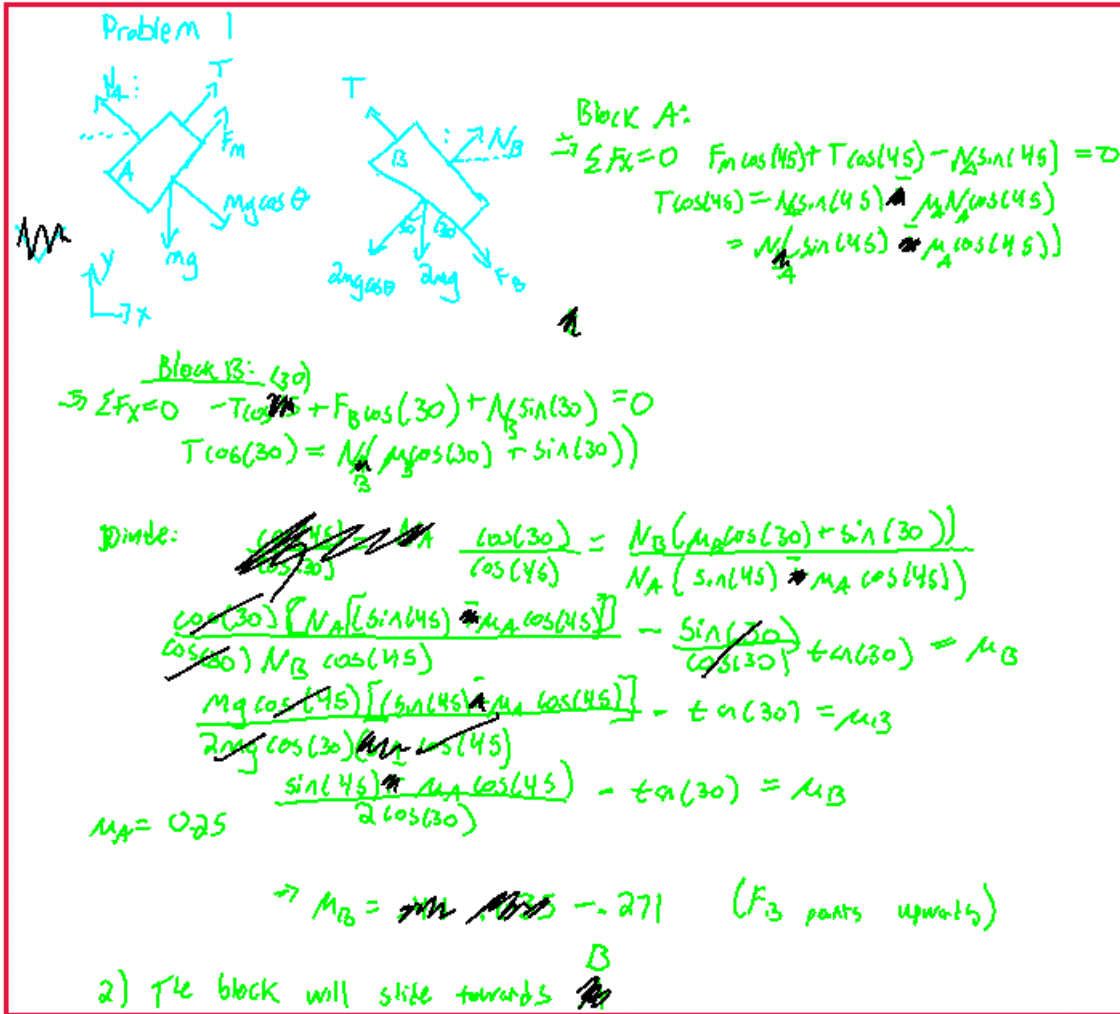 Problem 1
N_A
T
F_m
A
mg cos θ
mg
y
x
T
B
N_B
30
30
2mg cos θ
2mg
F_B
Block A:
⇒ ΣFx=0 F_m cos(45) + T cos(45) − N_A sin(45) = 0
T cos(45) = N_A sin(45) − μ_A N_A cos(45)
= N_A(sin(45) − μ_A cos(45))
Block B:
⇒ ΣFx=0 −T cos(30) + F_B cos(30) + N_B sin(30) = 0
T cos(30) = N_B(μ_B cos(30) + sin(30))
Divide: cos(30)/cos(45) = N_B(μ_B cos(30) + sin(30))/N_A(sin(45) − μ_A cos(45))
cos(30)[N_A[(sin(45) − μ_A cos(45)]]/cos(30) N_B cos(45) − sin(30)/cos(30) tan(30) = μ_B
mg cos(45)[(sin(45) − μ_A cos(45)]/2mg cos(30) cos(45) − tan(30) = μ_B
sin(45) − μ_A cos(45)/2cos(30) − tan(30) = μ_B
μ_A = 0.25
⇒ μ_B = −.271 (F_B points upwards)
2) The block will slide towards B